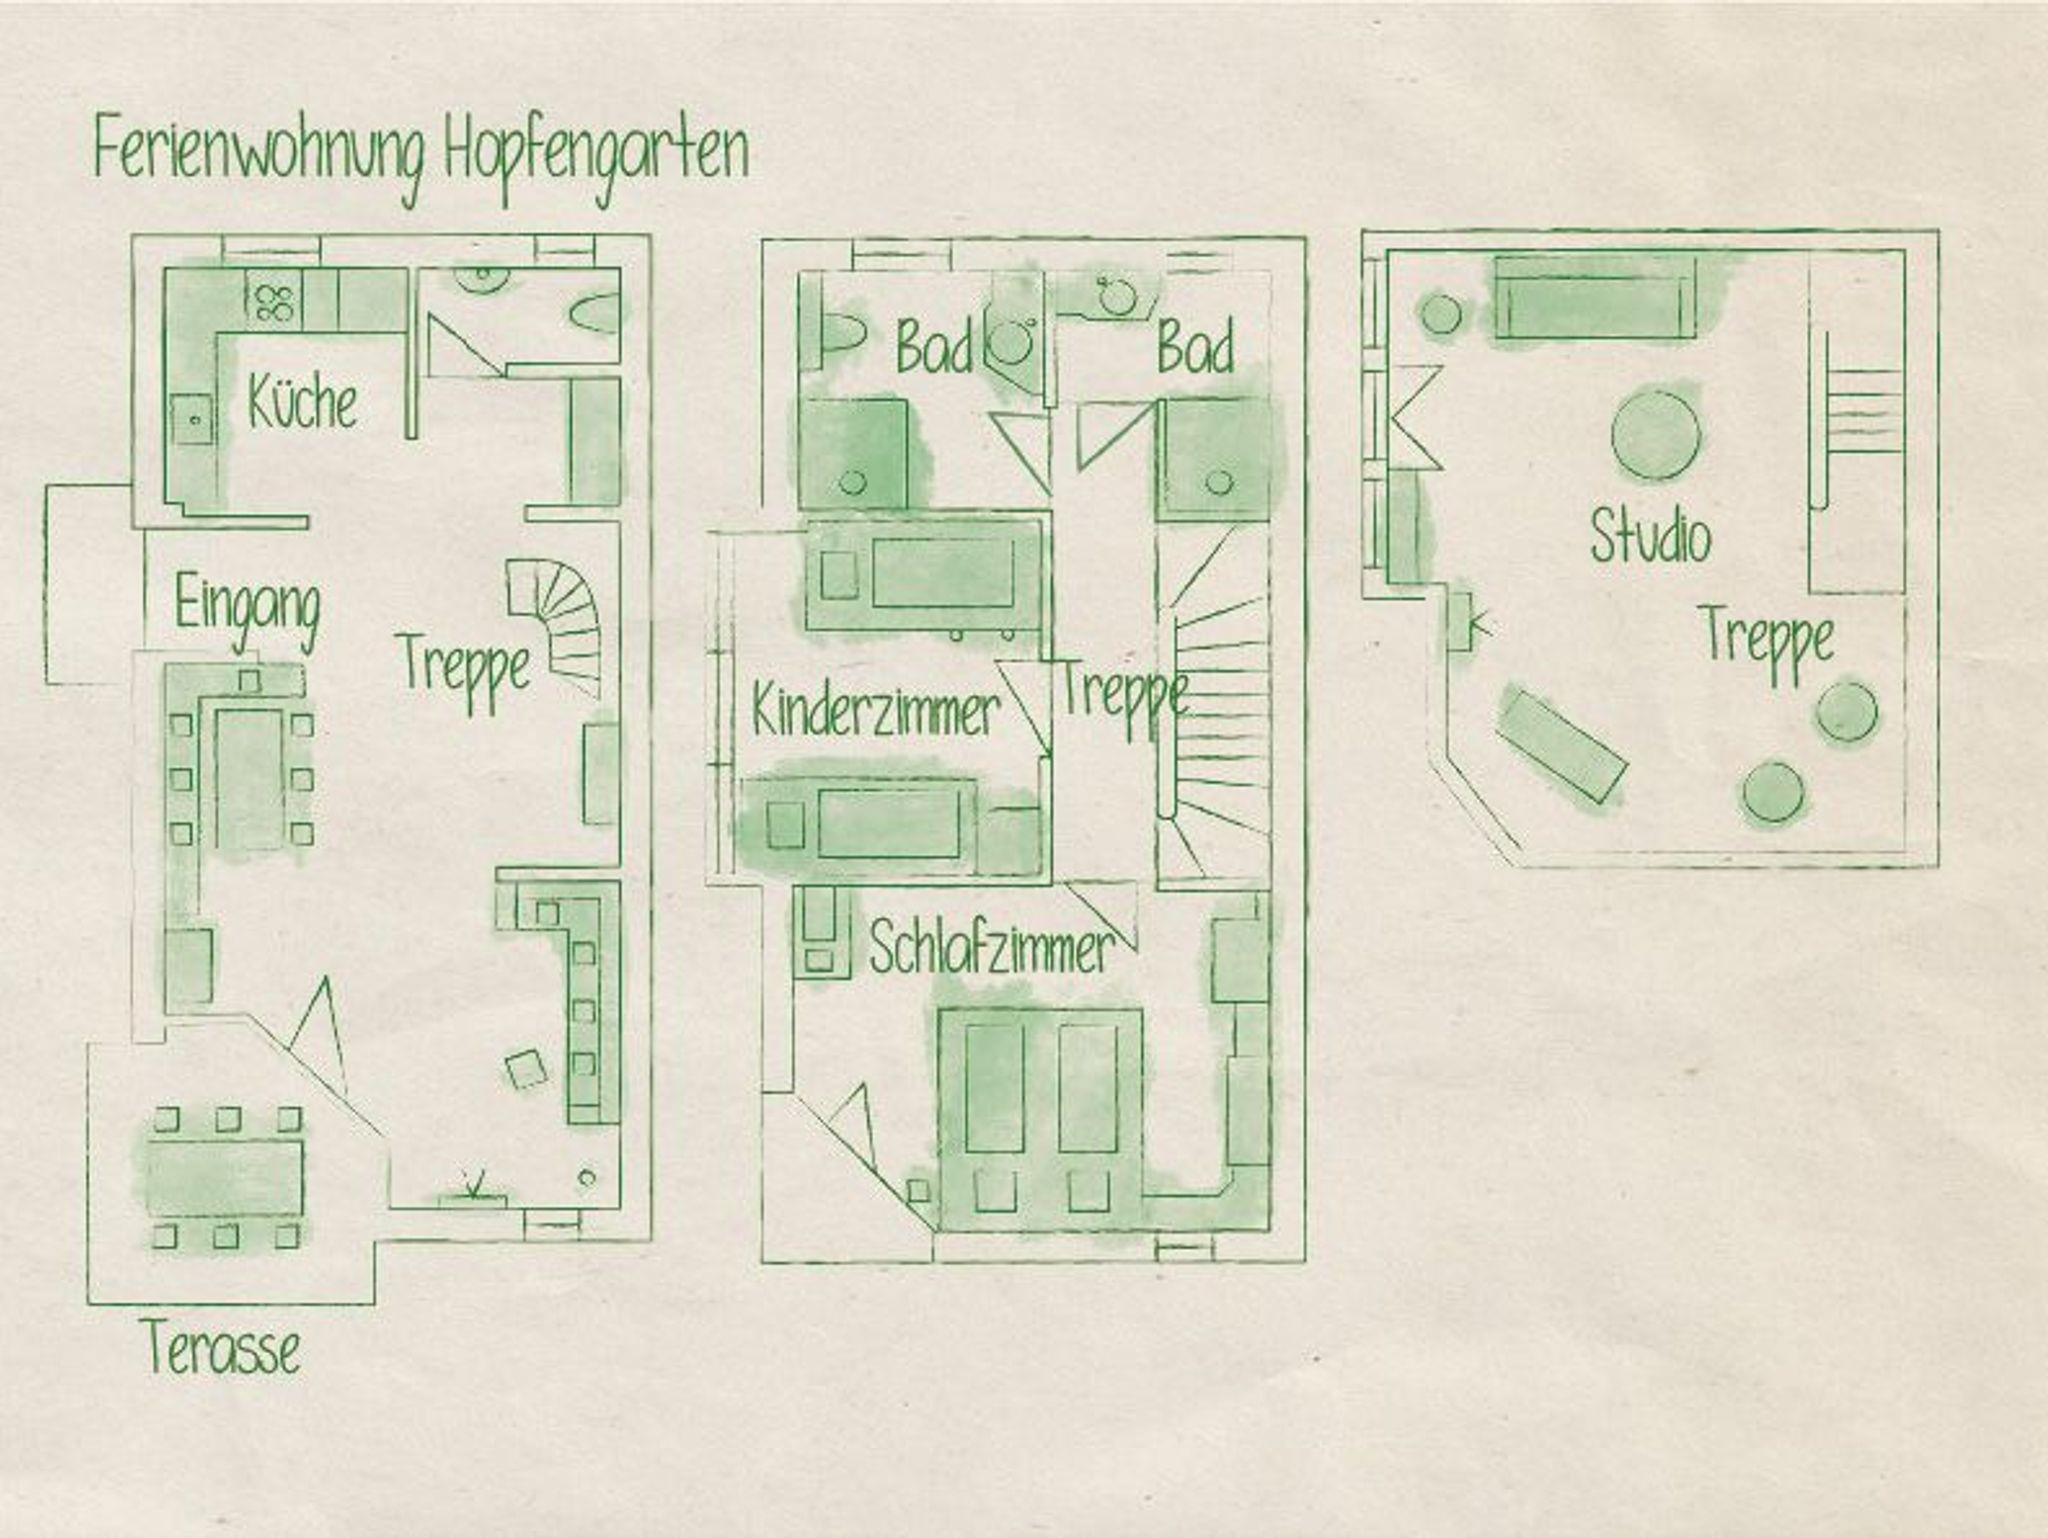 Ferienwohnung Hopfengarten
Küche
Eingang
Treppe
Terasse
Bad
Bad
Kinderzimmer
Treppe
Schlafzimmer
Studio
Treppe